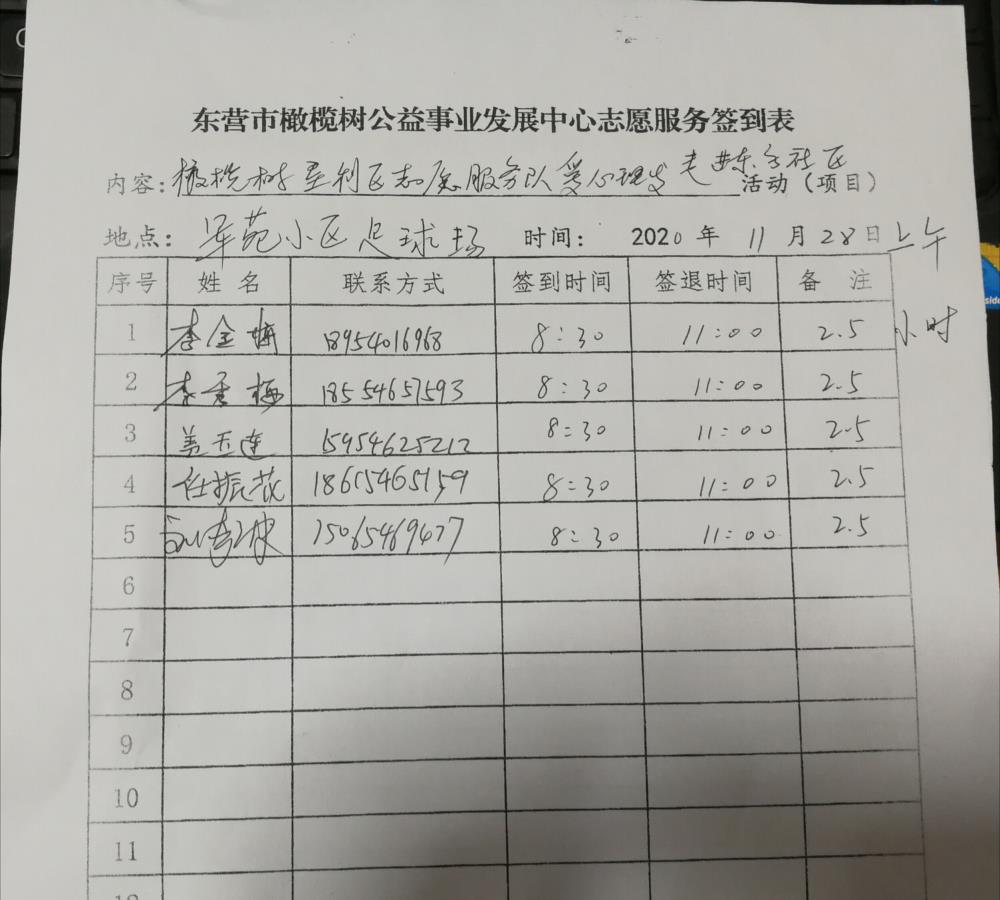 东营市橄榄树公益事业发展中心志愿服务签到表
内容：橄榄树垦利区志愿服务队爱心理发走进东兴社区活动（项目）
地点：苑小区足球场 时间： 2020 年 11 月 28 日 上午
序号 姓名 联系方式 签到时间 签退时间 备注
1 李金梅 18954016968 8:30 11:00 2.5 小时
2 李秀梅 18554657593 8:30 11:00 2.5
3 盖玉莲 15954625212 8:30 11:00 2.5
4 任振花 18615465159 8:30 11:00 2.5
5 15065469477 8:30 11:00 2.5
6
7
8
9
10
11